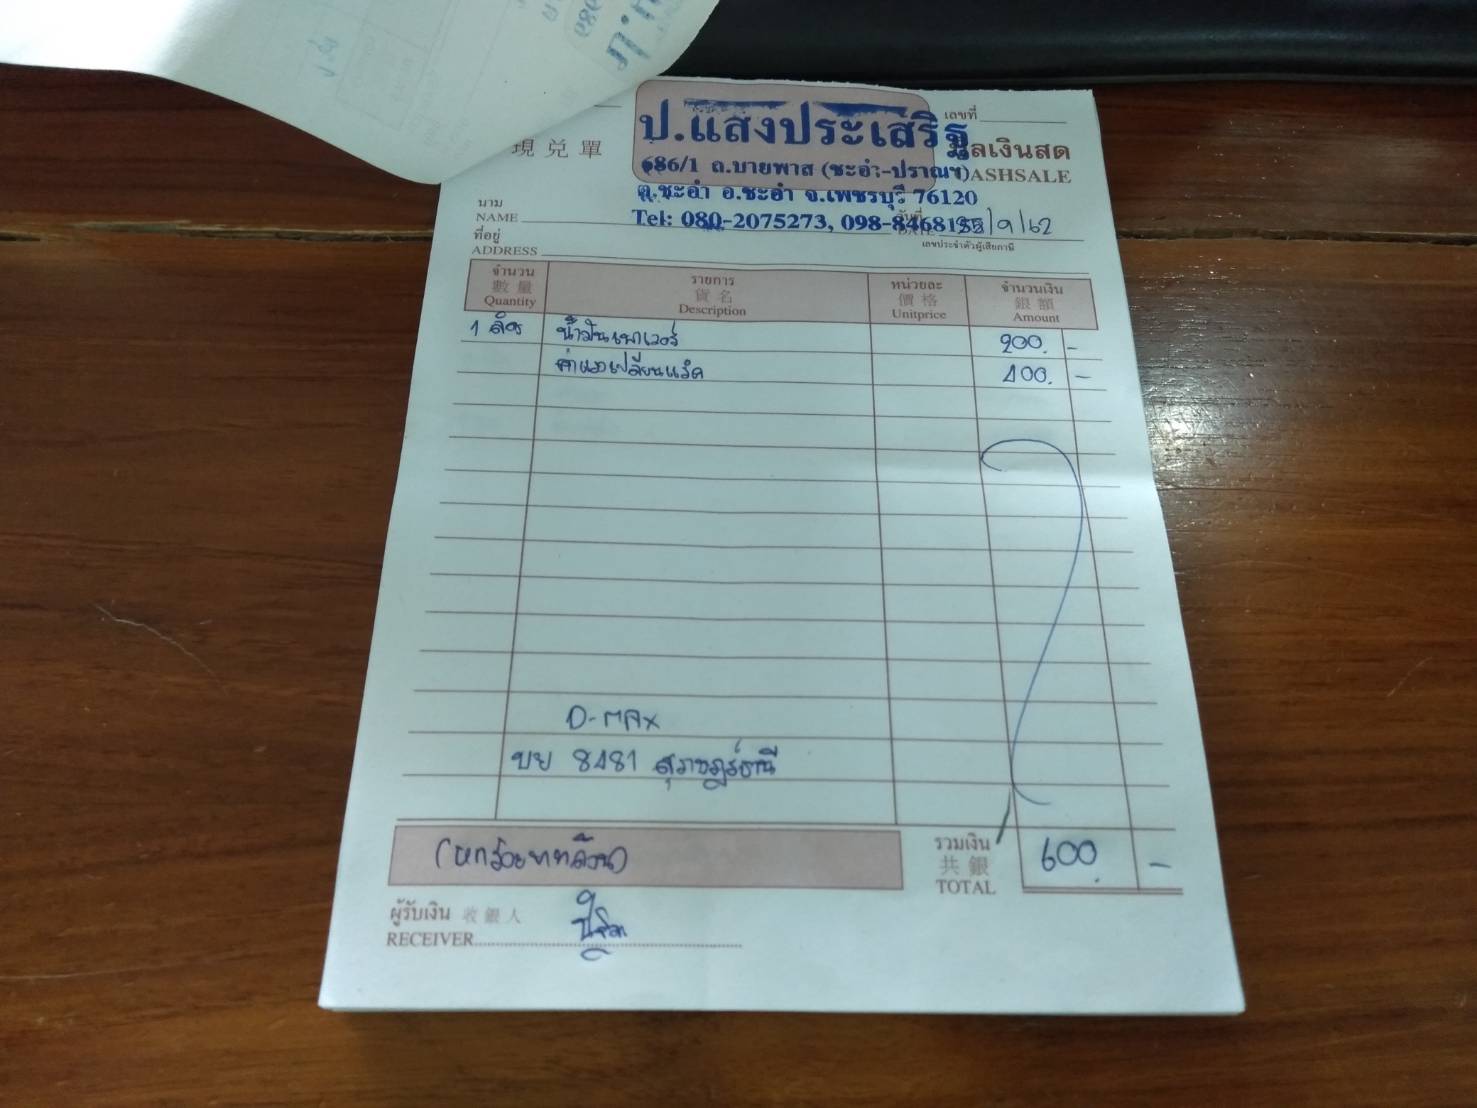 เลขที่
現兑單
ป.แสงประเสริฐ
ลเงินสด
686/1 ถ.บายพาส (ชะอำ-ปราณฯ)
ASHSALE
ต.ชะอำ อ.ชะอำ จ.เพชรบุรี 76120
นาม
NAME
Tel: 080-2075273,
/9/62
ที่อยู่
ADDRESS
เลขประจำตัวผู้เสียภาษี
จำนวน รายการ หน่วยละ จำนวนเงิน
數量 貨名 價格 銀額
Quantity Description Unitprice Amount
1 ลิตร น้ำมันเพาเวอร์ 200.-
ค่าแรงเปลี่ยนแร็ค 400.-
D-MAX
บย 8481 สุราษฎร์ธานี
(หกร้อยบาทถ้วน)
รวมเงิน
共銀
TOTAL
600.-
ผู้รับเงิน 收銀人
RECEIVER